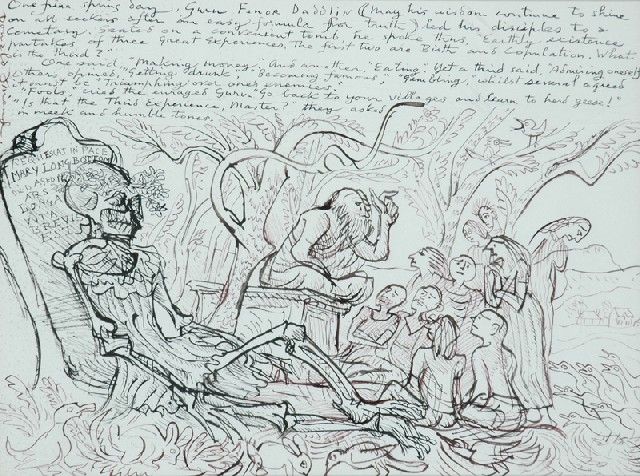 One fine spring day, Guru Fenor Daddoin (May his wisdom continue to shine
on all seekers after an easy formula for truth) led his disciples to a
cemetary, seated on a convenient tomb he spoke thus, "Earthly existence
partakes of three Great Experiences. The first two are Birth and Copulation. What
is the Third?"
One said, "Making money." And another, "Eating". Yet a third said, "Admiring oneself"
Others opined, "Getting drunk", "Becoming famous", "Gambling", whilst several agreed
it must be "Triumphing over one's enemies".
"Fools", cried the enraged Guru, "Go back to your villages and learn to herd geese!"
"Is that the Third Experience, Master" they asked
in meek and humble tones.
MARY LONGBOTTOM